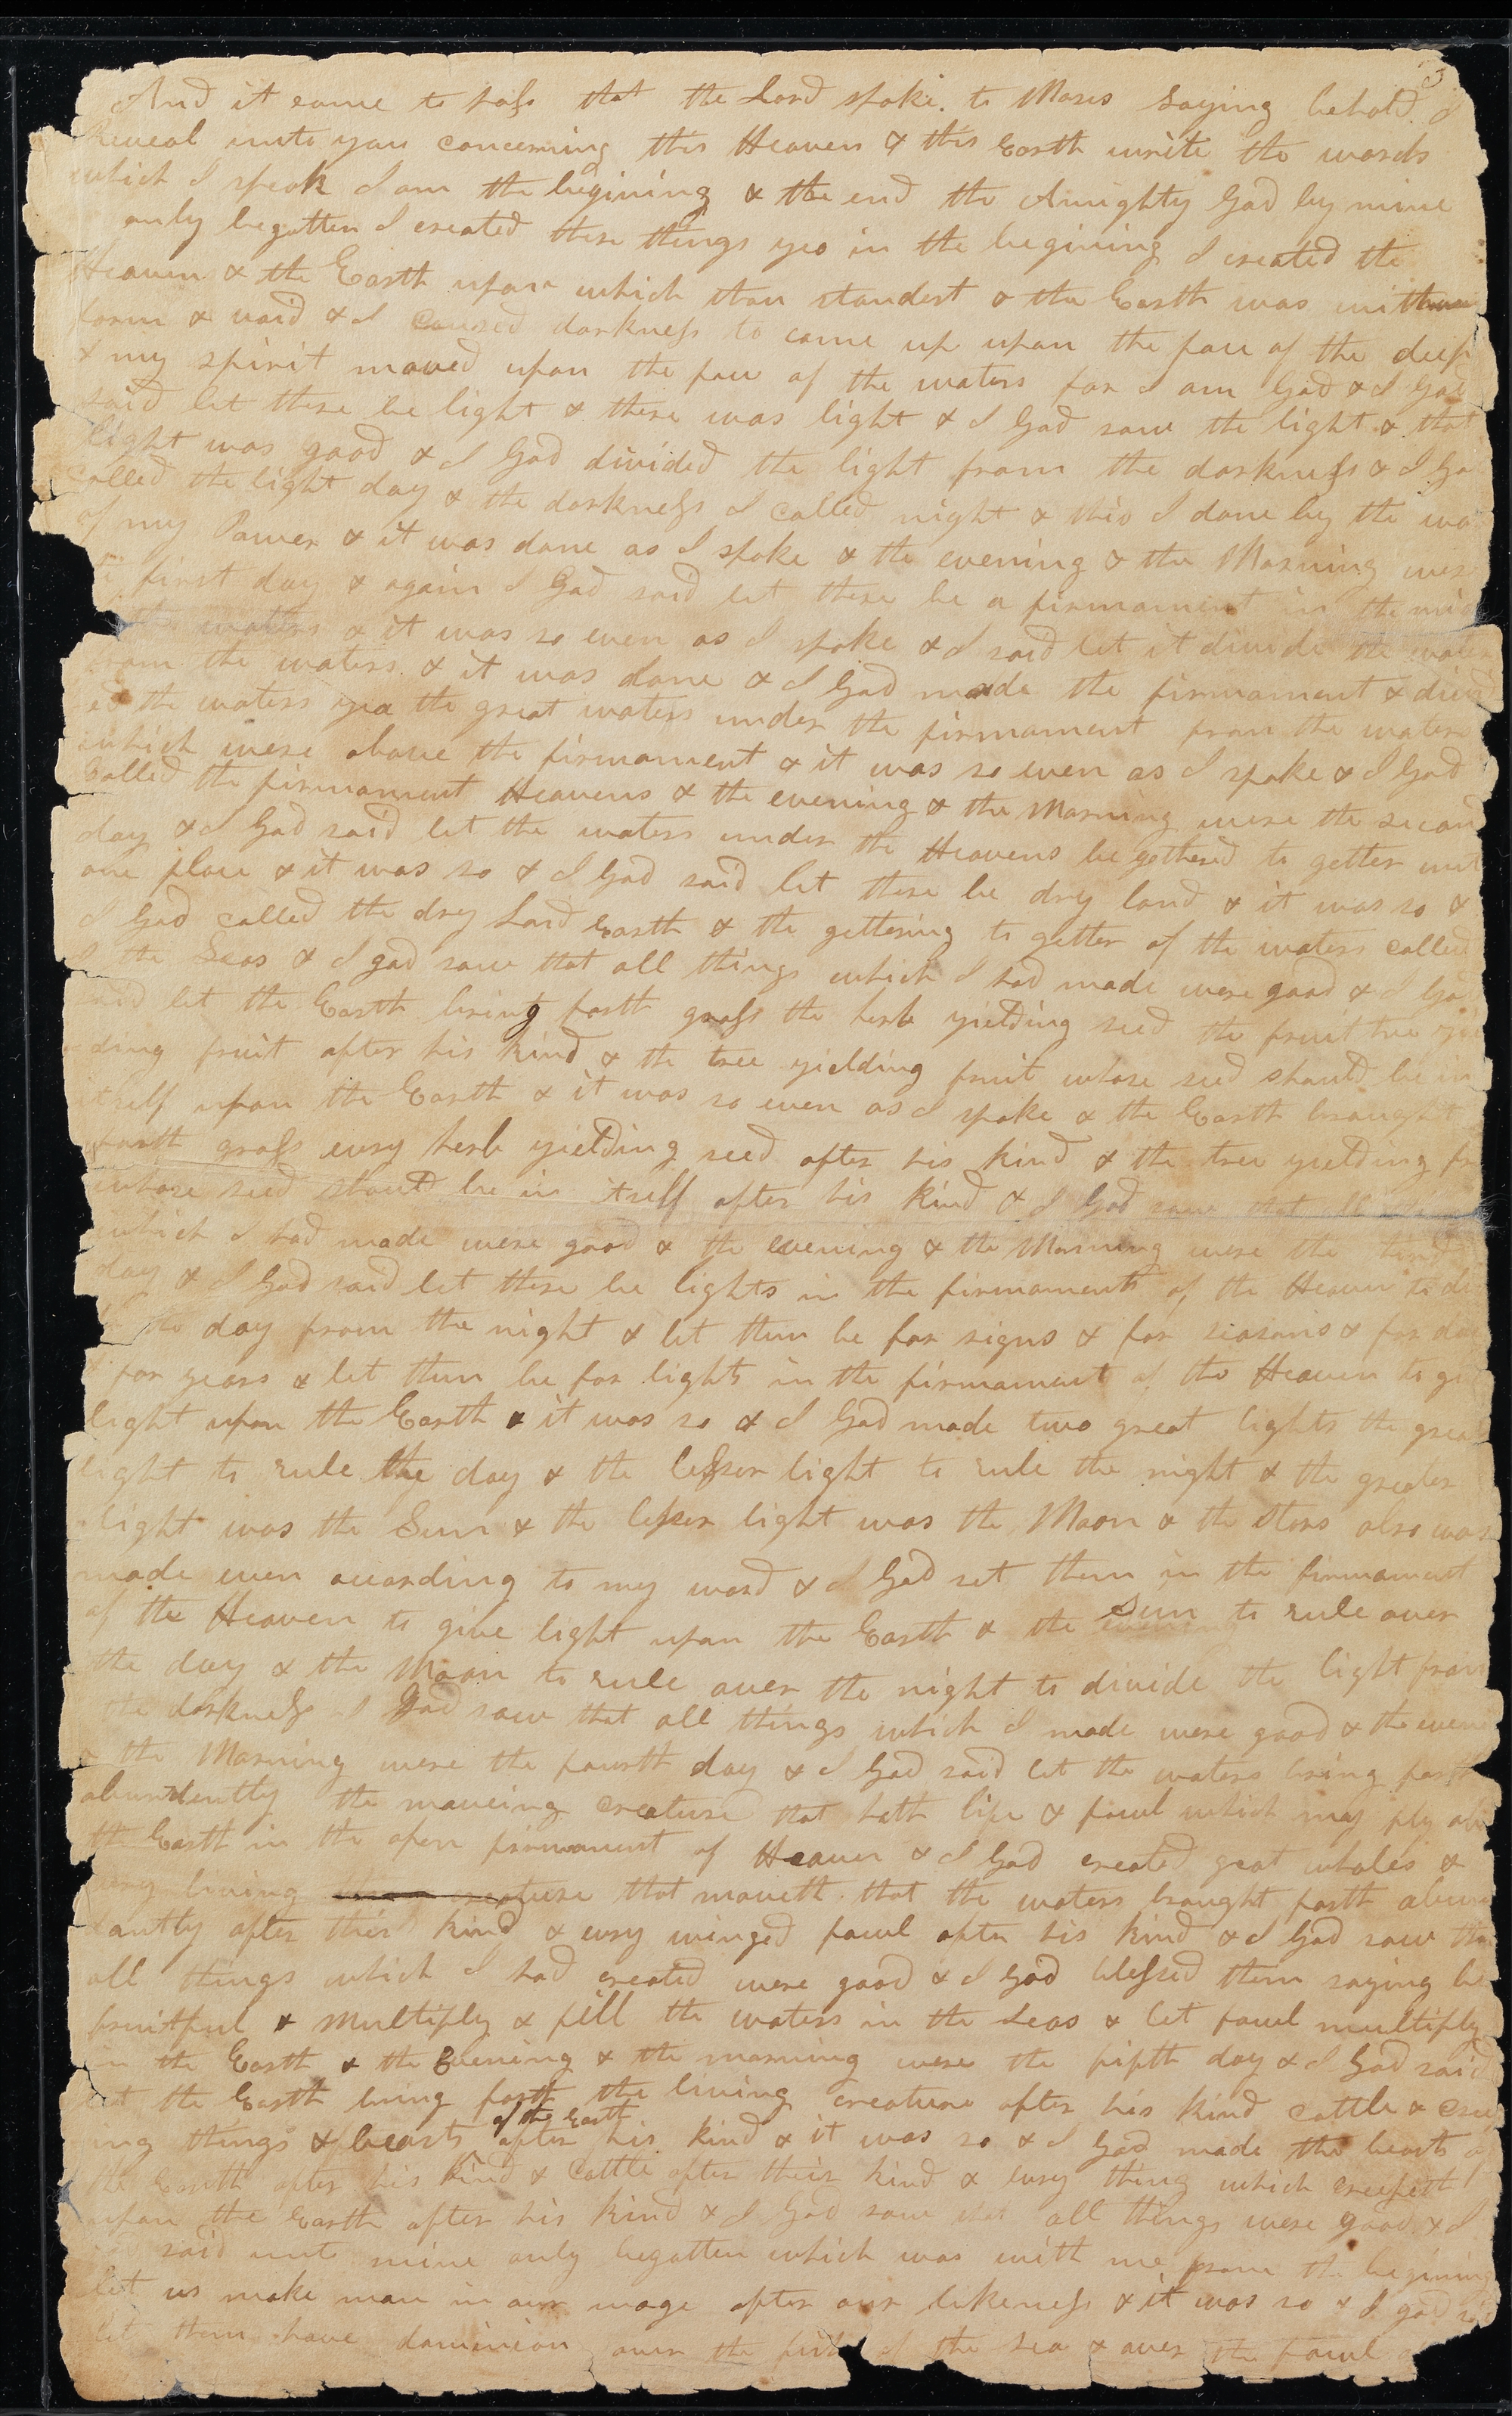 3
And it came to pass that the Lord spoke. to Moses Saying behold I
Reveal unto you concerning this Heaven & this Earth write the words
which I speak I am the begining & the end the Almighty God by mine
only begotten I created these things yea in the begining I created the
Heaven & the Earth upon which thou standest & the Earth was without
form & void & I caused darkness to come up upon the face of the deep
& my spirit moved upon the face of the waters for I am God & I God
said let there be light & there was light & I God saw the light & that
light was good & I God divided the light from the darkness & I Go
called the light day & the darkness I called night & this I done by the wo
of my Power & it was done as I spoke & the evening & the Morning wer
first day & again I God said let there be a firmament in the mid
the waters & it was so even as I spoke & I said let it divide the waters
from the waters & it was done & I God made the firmament & divid
ed the waters yea the great waters under the firmament from the waters
which were above the firmament & it was so even as I spoke & I God
called the firmament Heavens & the evening & the Morning were the secon
day & I God said let the waters under the Heavens be gethered to getter unt
one place & it was so & I God said let there be dry land & it was so &
I God called the dry Land Earth & the gettering to getter of the waters called
I the Seas & I god saw that all things which I had made were good & I Go
said let the Earth bring forth grass the herb yielding seed the fruit tree yie
ding fruit after his kind & the tree yielding fruit whose seed should be in
itself upon the Earth & it was so even as I spoke & the Earth braught
forth grass evry herb yielding seed after his kind & the tree yielding fr
whose seed should be in itself after his kind & I God saw that all things
which I had made were good & the evening & the Morning were the third
day & I God said let there be lights in the firmaments of the Heaven to di
the day from the night & let them be for signs & for seasons & for day
for years & let them be for lights in the firmament of the Heaven to gi
light upon the Earth & it was so & I God made two great lights the great
light to rule the day & the lesser light to rule the night & the greater
light was the Sun & the lesser light was the Moon & the stars also was
made even according to my word & I God set them in the firmament
of the Heaven to give light upon the Earth & the Sun to rule over
the day & the Moon to rule over the night to divide the light from
the darkness I God saw that all things which I made were good & the even
& the Morning were the fourth day & I God said let the waters bring forth
abundently the moveing creature that hath life & fowl which may fly abo
th Earth in the open firmament of Heaven & I God created great whales &
evry living creature that moveth that the waters braught forth abun
dantly after their kind & evry winged fowl after his kind & I God saw tha
all things which I had created were good & I God blessed them saying be
fruitful & multiply & fill the waters in the Seas & let fowl multiply
in the Earth & the Evening & the morning were the fifth day & I God said
let the Earth bring forth the living creature after his kind cattle & cree
ing things & beasts of the Earth after his kind & it was so & I God made the beasts of
the Earth after his kind & cattle after their kind & evry thing which creepeth
upon the Earth after his kind & I God saw that all things were good & I
said unto mine only begotten which was with me from the begining
let us make man in our image after our likeness & it was so & I god sai
let them have dominion over the fish of the sea & over the fowl